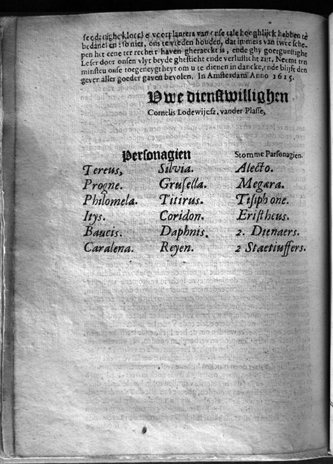 bedanct
pen het eene ter rechter haven gheraeckt is, ende ghy goetgunstighe
Leser door onsen vlyt beyde ghesticht ende verlusticht zijt. Neemt ten
minsten onse toegeneygtheyt om u te dienen in dancke, ende blijft den
gever aller goeder gaven bevolen. In Amsterdam Anno 1615.
Uwe dienstwillighen
Cornelis Lodewijcsz, vander Plasse,
Personagien Stomme Parsonagien.
Tereus, Silvia. Alecto.
Progne. Grusella. Megara.
Philomela. Titirus. Tisiphone.
Itys. Coridon. Eristheus.
Baucis. Daphnis. 2. Dienaers.
Caralena. Reyen. 2 Staetjuffers.